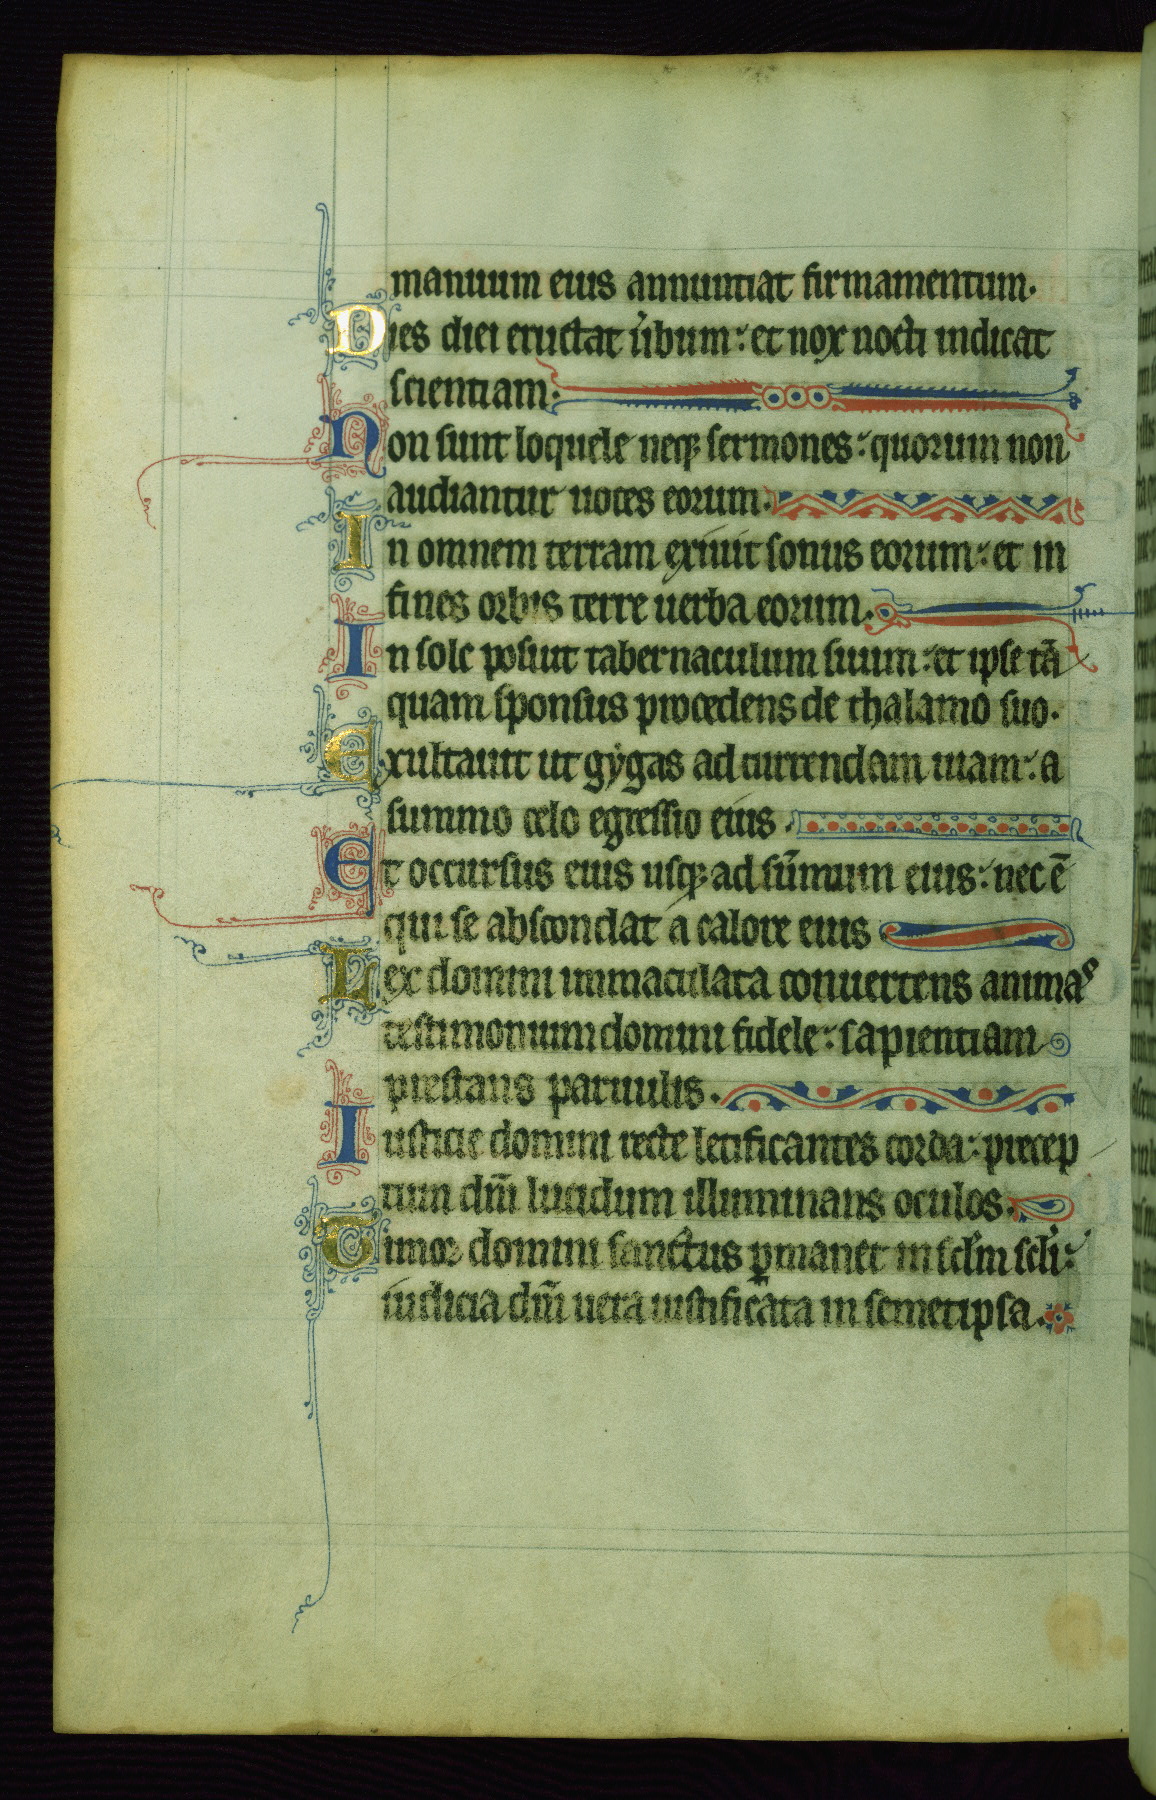 manuum eius annuntiat firmamentum.
Dies diei eructat ũbum: et nox nocti indicat
scientiam.
Non sunt loquele neqꝫ sermones: quorum non
audiantur uoces eorum.
In omnem terram exiuit sonus eorum: et in
fines orbis terre uerba eorum.
In sole posuit tabernaculum suum: et ipse tã
quam sponsus procedens de thalamo suo.
Exultauit ut gygas ad currendam uiam: a
summo celo egressio eius.
Et occursus eius usqꝫ ad sũmum eius: nec ẽ
qui se abscondat a calore eius
Lex domini immaculata conuertens animas
testimonium domini fidele: sapientiam
prestans paruulis.
Iusticie domini recte letificantes corda: precep
tum dñi lucidum illuminans oculos.
Timor domini sanctus ꝑmanet in sclm̃ scli:
iudicia dñi uera iustificata in semetipsa.